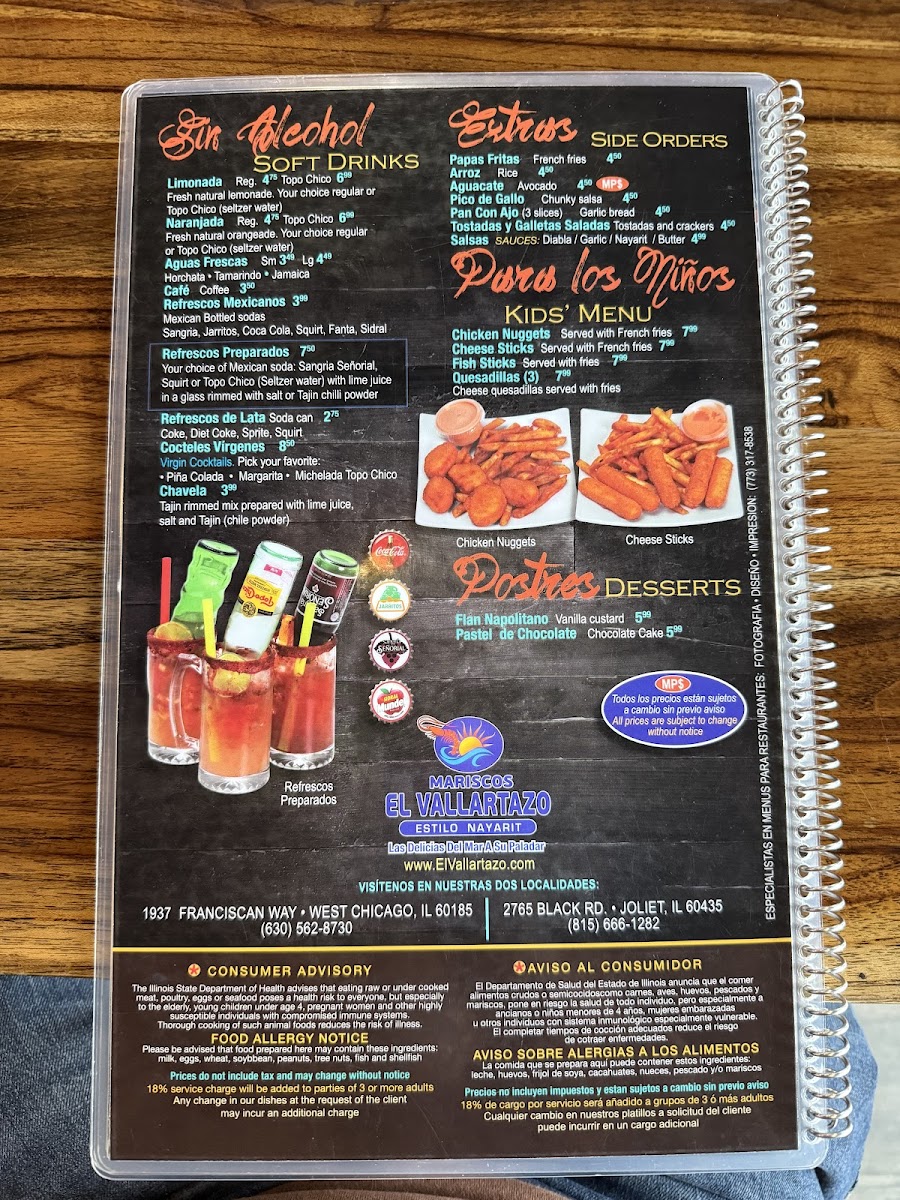 Sin Alcohol
SOFT DRINKS
Limonada Reg. 4⁷⁵ Topo Chico 6⁹⁹
Fresh natural lemonade. Your choice regular or
Topo Chico (seltzer water)
Naranjada Reg. 4⁷⁵ Topo Chico 6⁹⁹
Fresh natural orangeade. Your choice regular
or Topo Chico (seltzer water)
Aguas Frescas Sm 3⁴⁹ Lg 4⁴⁹
Horchata • Tamarindo • Jamaica
Café Coffee 3⁵⁰
Refrescos Mexicanos 3⁹⁹
Mexican Bottled sodas
Sangria, Jarritos, Coca Cola, Squirt, Fanta, Sidral
Refrescos Preparados 7⁵⁰
Your choice of Mexican soda: Sangria Señorial,
Squirt or Topo Chico (Seltzer water) with lime juice
in a glass rimmed with salt or Tajin chilli powder
Refrescos de Lata Soda can 2⁷⁵
Coke, Diet Coke, Sprite, Squirt
Cocteles Vírgenes 8⁵⁰
Virgin Cocktails. Pick your favorite:
• Piña Colada • Margarita • Michelada Topo Chico
Chavela 3⁹⁹
Tajin rimmed mix prepared with lime juice,
salt and Tajin (chile powder)
Coca-Cola
JARRITOS
SEÑORIAL
Mundet
Topo Chico
SEÑORIAL
Refrescos
Preparados
Extras SIDE ORDERS
Papas Fritas French fries 4⁵⁰
Arroz Rice 4⁵⁰
Aguacate Avocado 4⁵⁰ MP$
Pico de Gallo Chunky salsa 4⁵⁰
Pan Con Ajo (3 slices) Garlic bread 4⁵⁰
Tostadas y Galletas Saladas Tostadas and crackers 4⁵⁰
Salsas SAUCES: Diabla / Garlic / Nayarit / Butter 4⁹⁹
Para los Niños
KIDS' MENU
Chicken Nuggets Served with French fries 7⁹⁹
Cheese Sticks Served with French fries 7⁹⁹
Fish Sticks Served with fries 7⁹⁹
Quesadillas (3) 7⁹⁹
Cheese quesadillas served with fries
Chicken Nuggets
Cheese Sticks
Postres DESSERTS
Flan Napolitano Vanilla custard 5⁹⁹
Pastel de Chocolate Chocolate Cake 5⁹⁹
MP$
Todos los precios están sujetos
a cambio sin previo aviso
All prices are subject to change
without notice
ESPECIALISTAS EN MENUS PARA RESTAURANTES: FOTOGRAFIA • DISEÑO • IMPRESION: (773) 317-8538
MARISCOS
EL VALLARTAZO
ESTILO NAYARIT
Las Delicias Del Mar A Su Paladar
www.ElVallartazo.com
VISÍTENOS EN NUESTRAS DOS LOCALIDADES:
1937 FRANCISCAN WAY • WEST CHICAGO, IL 60185
(630) 562-8730
2765 BLACK RD. • JOLIET, IL 60435
(815) 666-1282
CONSUMER ADVISORY
The Illinois State Department of Health advises that eating raw or under cooked
meat, poultry, eggs or seafood poses a health risk to everyone, but especially
to the elderly, young children under age 4, pregnant women and other highly
susceptible individuals with compromised immune systems.
Thorough cooking of such animal foods reduces the risk of illness.
FOOD ALLERGY NOTICE
Please be advised that food prepared here may contain these ingredients:
milk, eggs, wheat, soybean, peanuts, tree nuts, fish and shellfish
Prices do not include tax and may change without notice
18% service charge will be added to parties of 3 or more adults
Any change in our dishes at the request of the client
may incur an additional charge
AVISO AL CONSUMIDOR
El Departamento de Salud del Estado de Illinois anuncia que el comer
alimentos crudos o semicocidoscomo carnes, aves, huevos, pescados y
mariscos, pone en riesgo la salud de todo individuo, pero especialmente a
ancianos o niños menores de 4 años, mujeres embarazadas
u otros individuos con sistema inmunológico especialmente vulnerable.
El completar tiempos de cocción adecuados reduce el riesgo
de cotraer enfermedades.
AVISO SOBRE ALERGIAS A LOS ALIMENTOS
La comida que se prepara aquí puede contener estos ingredientes:
leche, huevos, frijol de soya, cacahuates, nueces, pescado y/o mariscos
Precios no incluyen impuestos y estan sujetos a cambio sin previo aviso
18% de cargo por servicio será añadido a grupos de 3 ó más adultos
Cualquier cambio en nuestros platillos a solicitud del cliente
puede incurrir en un cargo adicional